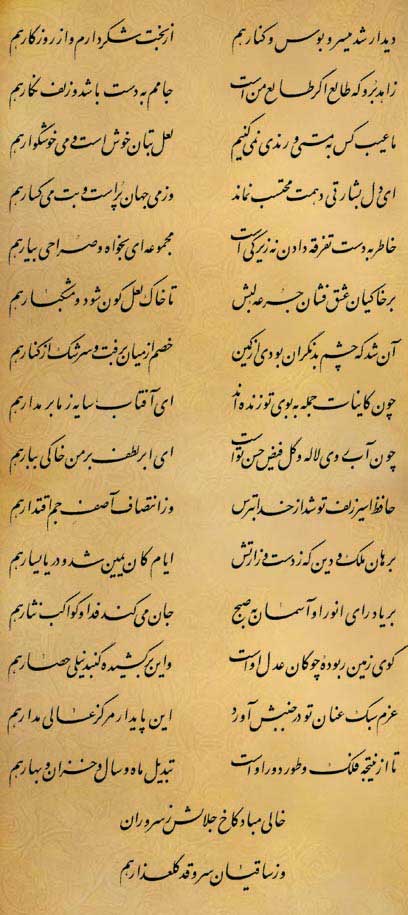 دیدار شد میسر و بوس و کنار هم از بخت شکر دارم و از روزگار هم
زاهد برو که طالع اگر طالع من است جامم به دست باشد و زلف نگار هم
ما عیب کس به مستی و رندی نمی کنیم لعل بتان خوش است و می خوشگوار هم
ای دل بشارتی دهمت محتسب نماند وز می جهان پر است و بت می گسار هم
خاطر به دست تفرقه دادن نه زیرکی است مجموعه ای بخواه و صراحی بیار هم
بر خاکیان عشق فشان جرعه لبش تا خاک لعل گون شود و مشکبار هم
آن شد که چشم بد نگران بودی از کمین خصم از میان برفت و سرشک از کنار هم
چون کاینات جمله به بوی تو زنده اند ای آفتاب سایه ز ما بر مدار هم
چون آب روی لاله و گل فیض حسن تو است ای ابر لطف بر من خاکی ببار هم
حافظ اسیر زلف تو شد از خدا بترس وز انتصاف آصف جم اقتدار هم
برهان ملک و دین که ز دست وزارتش ایام کان یمین شد و دریا یسار هم
بر یاد رای انور او آسمان به صبح جان می کند فدا و کواکب نثار هم
گوی زمین ربوده چوگان عدل او است واین برکشیده گنبد نیلی حصار هم
عزم سبک عنان تو در جنبش آورد این پایدار مرکز عالی مدار هم
تا از نتیجه فلک و طور دور او است تبدیل ماه و سال و خزان و بهار هم
خالی مباد کاخ جلالش ز سروران
وز ساقیان سرو قد گلعذار هم